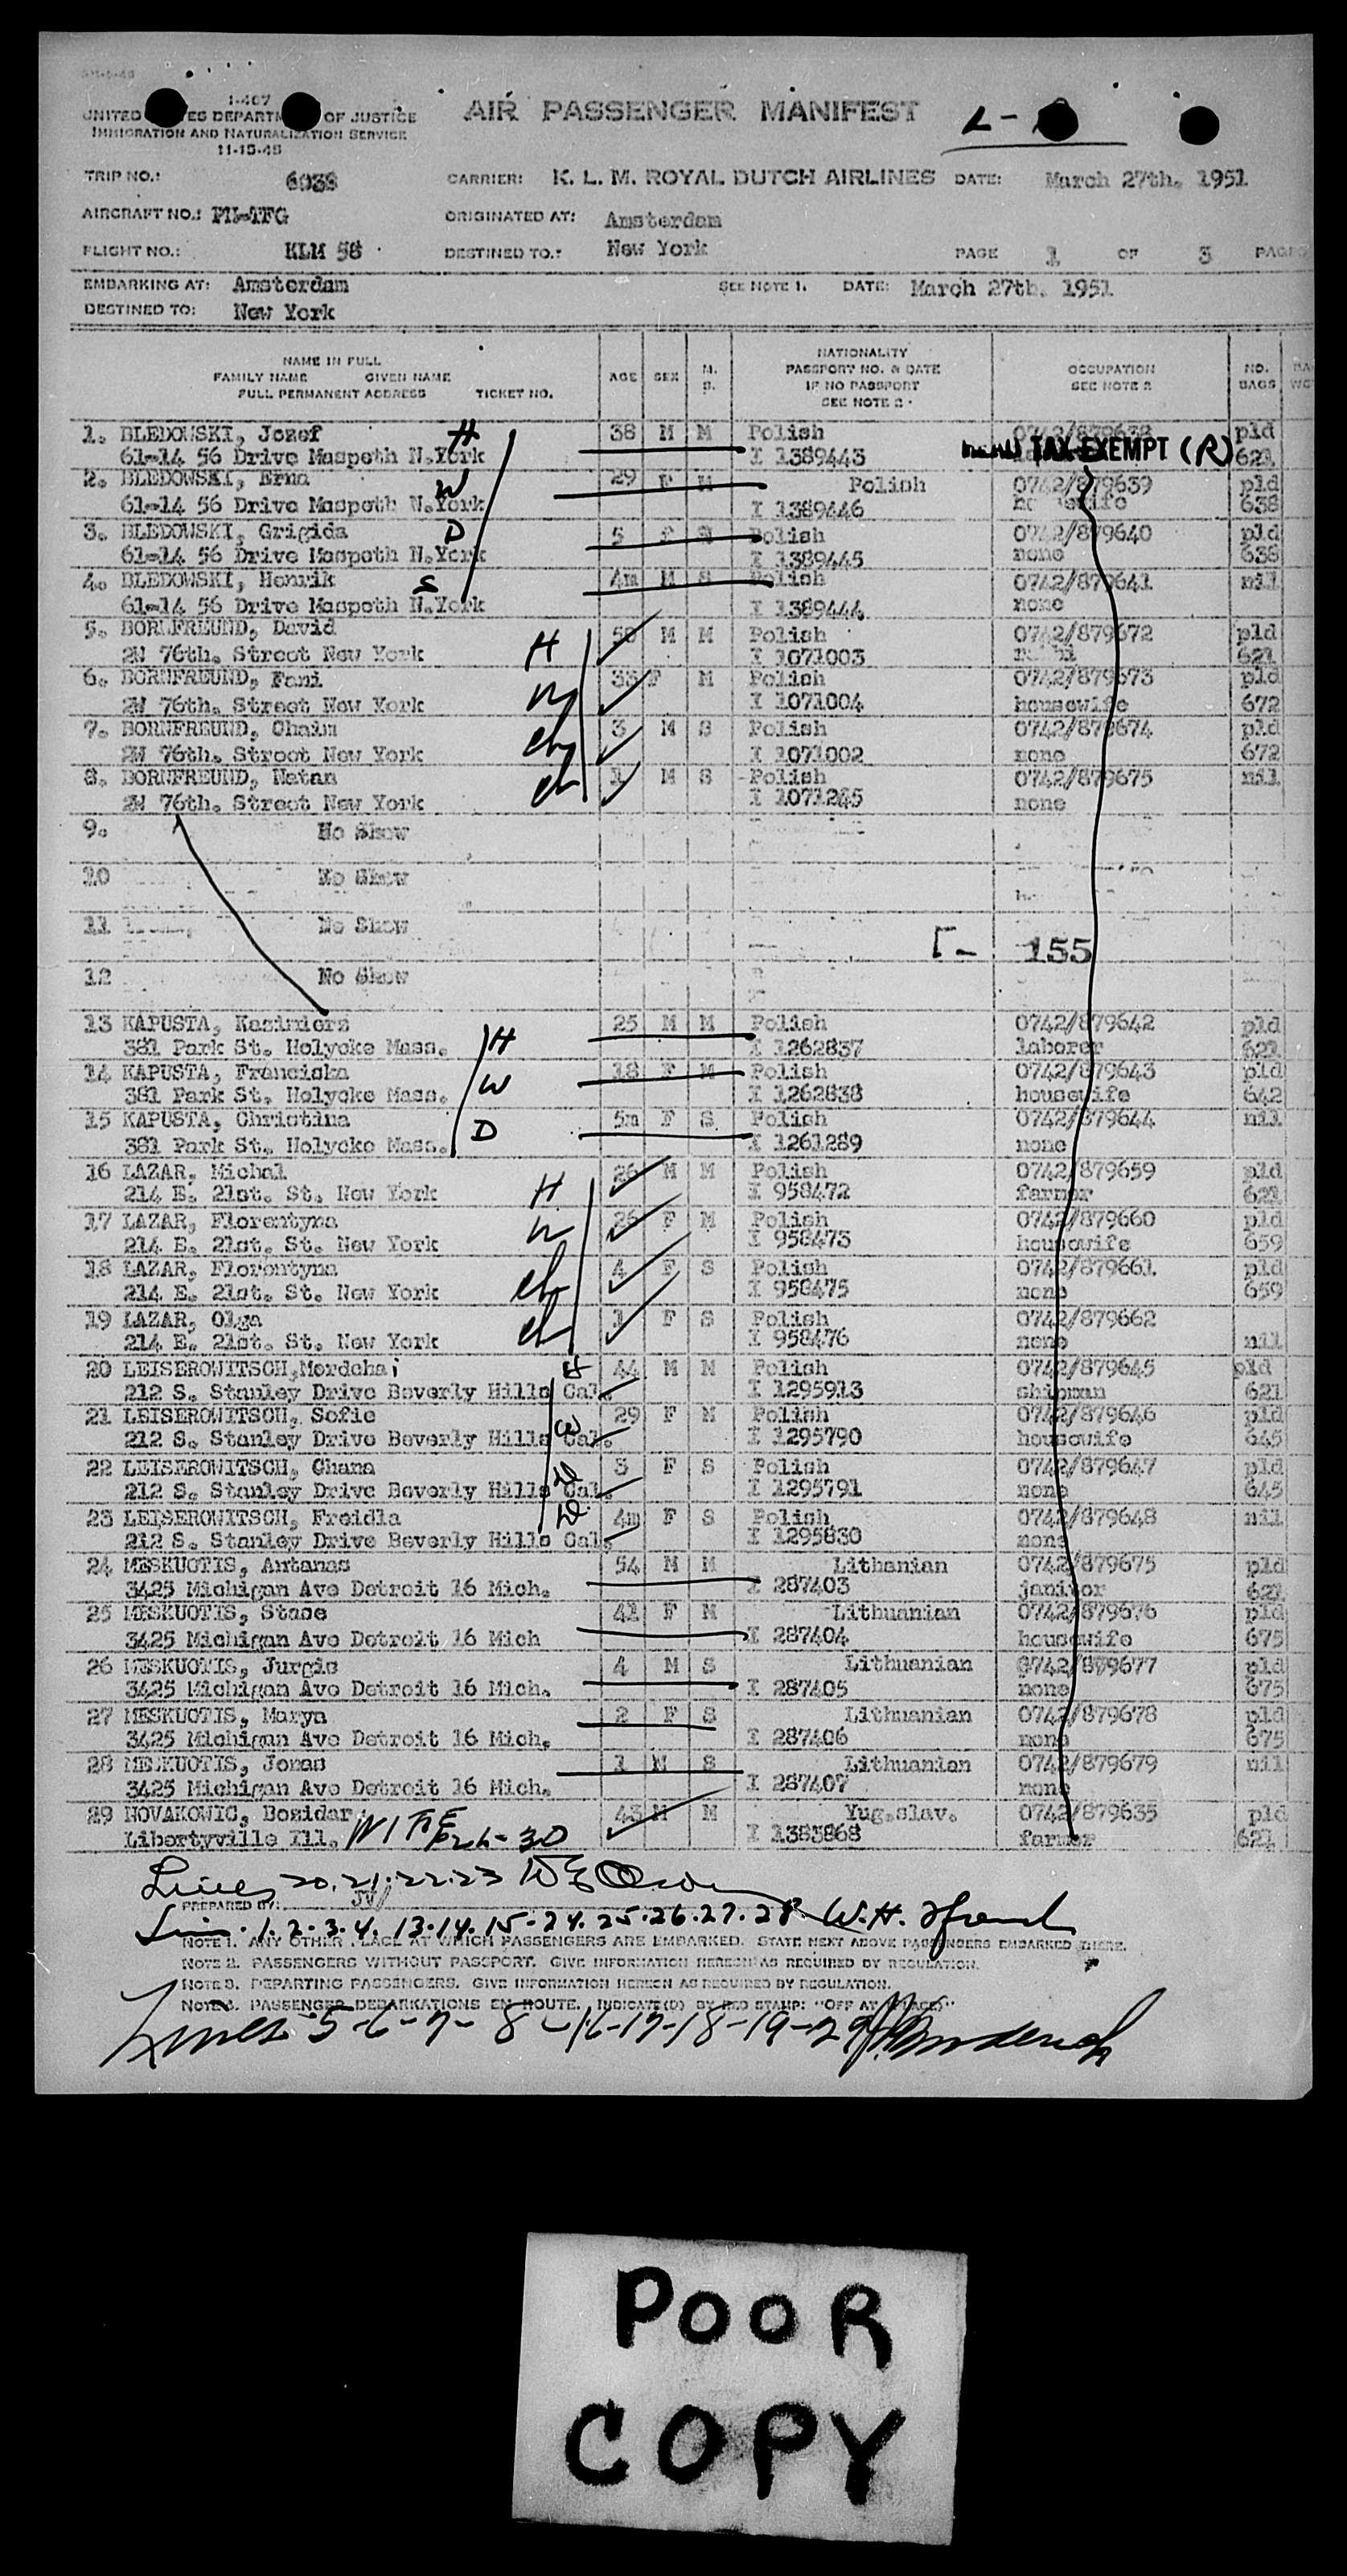 1-467
UNITED ES DEPARTM OF JUSTICE
IMMIGRATION AND NATURALIZATION SERVICE
11-15-48
AIR PASSENGER MANIFEST
TRIP NO.: 6038 CARRIER: K. L. M. ROYAL DUTCH AIRLINES DATE: March 27th. 1951
AIRCRAFT NO.: PH-TFG ORIGINATED AT: Amsterdam
FLIGHT NO.: KLM 58 DESTINED TO.: New York PAGE 1 OF 3 PAGES
EMBARKING AT: Amsterdam SEE NOTE 1. DATE: March 27th. 1951
DESTINED TO: New York
NAME IN FULL
FAMILY NAME GIVEN NAME
FULL PERMANENT ADDRESS TICKET NO.
AGE SEX M. S.
NATIONALITY
PASSPORT NO. & DATE
IF NO PASSPORT
SEE NOTE 2
OCCUPATION
SEE NOTE 2
NO. BAGS
1. BLEDOWSKI, Jozef H 38 M M Polish 0742/879638 pld
61-14 56 Drive Maspeth N.York I 1389443 TAX EXEMPT (R) 621
2. BLEDOWSKI, Erna W 29 F M Polish 0742/879639 pld
61-14 56 Drive Maspeth N.York I 1389446 housewife 638
3. BLEDOWSKI, Grigida D 5 F S Polish 0742/879640 pld
61-14 56 Drive Maspeth N.York I 1389445 none 638
4. BLEDOWSKI, Henrik S 4m M S Polish 0742/879641 nil
61-14 56 Drive Maspeth N.York I 1389444 none
5. BORNFREUND, David H 50 M M Polish 0742/879672 pld
2W 76th. Street New York I 1071003 621
6. BORNFREUND, Fani W 33 F M Polish 0742/879673 pld
2W 76th. Street New York I 1071004 housewife 672
7. BORNFREUND, Chaim ch 3 M S Polish 0742/879674 pld
2W 76th. Street New York I 1071002 none 672
8. BORNFREUND, Natan ch 1 M S Polish 0742/879675 nil
2W 76th. Street New York I 1071245 none
9. No Show
10 No Show
11 No Show
155
12 No Show
13 KAPUSTA, Kazimierz 25 M M Polish 0742/879642 pld
381 Park St. Holyoke Mass. H I 1262837 laborer 621
14 KAPUSTA, Franciska 18 F M Polish 0742/879643 pld
381 Park St. Holyoke Mass. W I 1262838 housewife 642
15 KAPUSTA, Christina 5m F S Polish 0742/879644 nil
381 Park St. Holyoke Mass. D I 1261289 none
16 LAZAR, Michal 26 M M Polish 0742/879659 pld
214 E. 21st. St. New York H I 958472 farmer 621
17 LAZAR, Florentyna 26 F M Polish 0742/879660 pld
214 E. 21st. St. New York W I 958473 housewife 659
18 LAZAR, Florentyna 4 F S Polish 0742/879661 pld
214 E. 21st. St. New York ch I 958475 none 659
19 LAZAR, Olga 1 F S Polish 0742/879662
214 E. 21st. St. New York ch I 958476 none nil
20 LEISEROWITSCH, Mordchai H 44 M M Polish 0742/879645 pld
212 S. Stanley Drive Beverly Hills Cal. I 1295913 shipman 621
21 LEISEROWITSCH, Sofie W 29 F M Polish 0742/879646 pld
212 S. Stanley Drive Beverly Hills Cal. I 1295790 housewife 645
22 LEISEROWITSCH, Chana D 3 F S Polish 0742/879647 pld
212 S. Stanley Drive Beverly Hills Cal. I 1295791 none 645
23 LEISEROWITSCH, Freidla D 4m F S Polish 0742/879648 nil
212 S. Stanley Drive Beverly Hills Cal. I 1295830 none
24 MESKUOTIS, Antanas 54 M M Lithanian 0742/879675 pld
3425 Michigan Ave Detroit 16 Mich. I 287403 janitor 621
25 MESKUOTIS, Stase 41 F M Lithuanian 0742/879676 pld
3425 Michigan Ave Detroit 16 Mich I 287404 housewife 675
26 MESKUOTIS, Jurgis 4 M S Lithuanian 0742/879677 pld
3425 Michigan Ave Detroit 16 Mich. I 287405 none 675
27 MESKUOTIS, Marya 2 F S Lithuanian 0742/879678 pld
3425 Michigan Ave Detroit 16 Mich. I 287406 none 675
28 MESKUOTIS, Jonas 1 M S Lithuanian 0742/879679 nil
3425 Michigan Ave Detroit 16 Mich. I 287407 none
29 NOVAKOWIC, Bozidar 43 M M Yug.slav. 0742/879635 pld
Libertyville Ill. WIFE 30 I 1383868 farmer 621
Lines 20.21.22.23
PREPARED BY: JV
Lines 1.2.3.4.13.14.15-24.25.26.27.28 W.H.
NOTE 1. ANY OTHER PLACE AT WHICH PASSENGERS ARE EMBARKED. STATE NEXT ABOVE PASSENGERS EMBARKED THERE.
NOTE 2. PASSENGERS WITHOUT PASSPORT. GIVE INFORMATION HEREON AS REQUIRED BY REGULATION.
NOTE 3. DEPARTING PASSENGERS. GIVE INFORMATION HEREON AS REQUIRED BY REGULATION.
NOTE 4. PASSENGER DEBARKATIONS EN ROUTE. INDICATE(D) BY RED STAMP: "OFF AT (PLACE)"
Lines 5-6-7-8-16-17-18-19-29
POOR
COPY